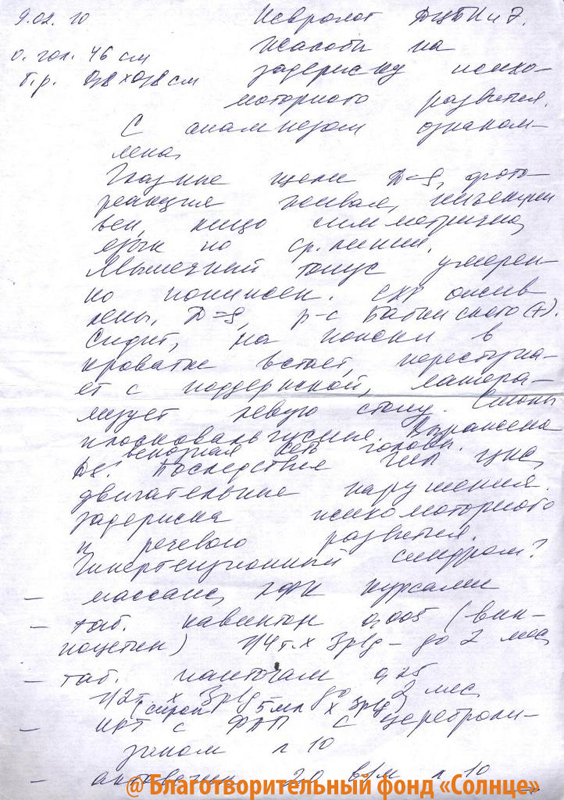 9.02.10 Невролог ДЦПНиЭ.
о. гол. 46 см Жалобы на
б.р. 0,8 х 0,8 см задержку психо-
моторного развития.
С анамнезом ознаком-
лена.
Глазные щели D=S, фото-
реакция живая,
лицо симметрично,
язык по ср. линии.
Мышечный тонус умерен-
но понижен. СХР ожив-
лены, D=S, р-с Бабинского (+).
Сидит, на ножки в
кроватке встает, переступа-
ет с поддержкой,
левую стопу. Стопы
плосковальгусные. Выражена
венозная сеть головы.
Ds: Последствия ЦНС,
двигательные нарушения.
Задержка психомоторного
и речевого развития.
Гипертензионный синдром?
– массаж, ЛФК курсами
– таб. кавинтон 0,005 (вин-
поцетин) 1/4 т. х 3 р/д – до 2 мес
– таб. пантогам 0,25
1/2 т х 3 р/д до 2 мес
(сироп 5 мл х 3 р/д)
– с церебролизи-
зином n 10
– актовегин 2,0 в/м n 10
@Благотворительный фонд «Солнце»